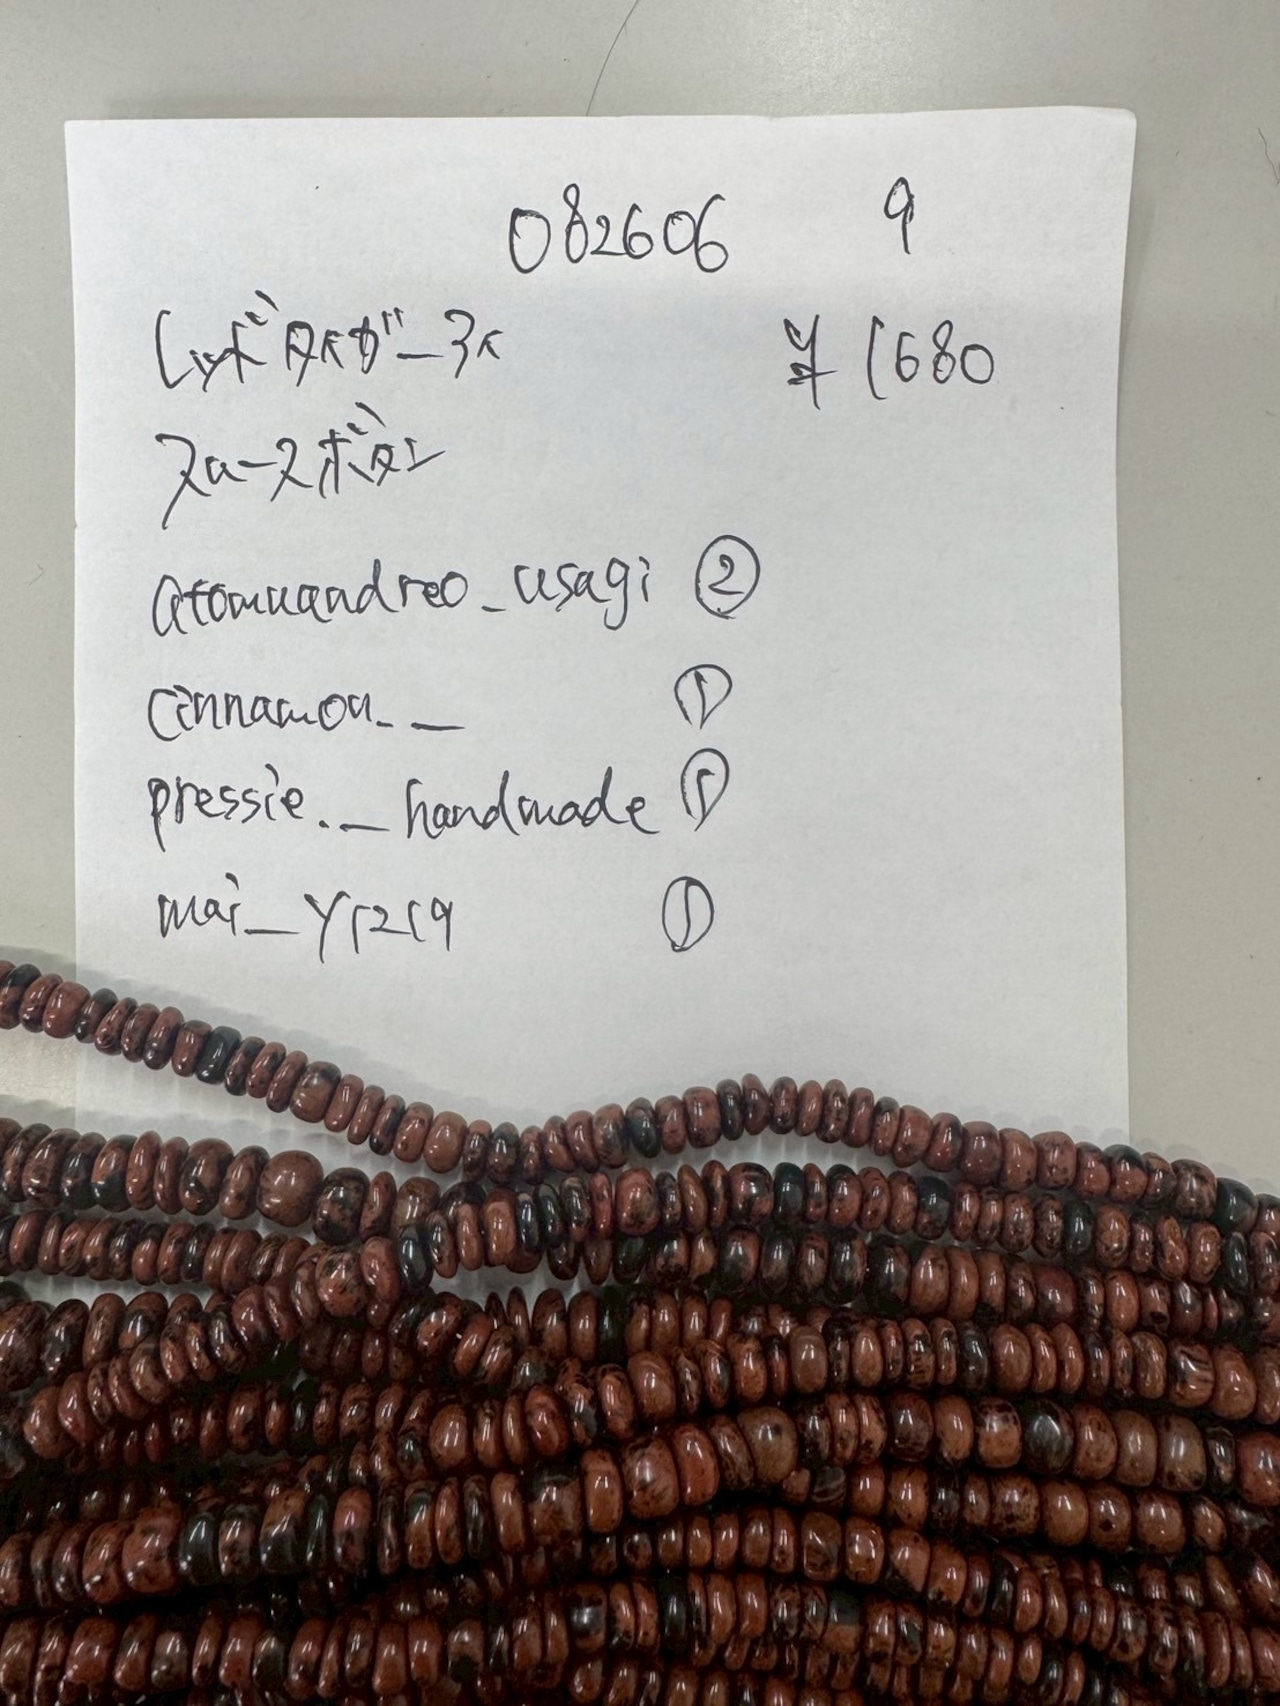 082606 9
レッドタイガーアイ ¥1680
スローズボタン
atomuandreo_usagi ②
cinnamon._ ①
pressie._handmade ①
mai_y1219 ①